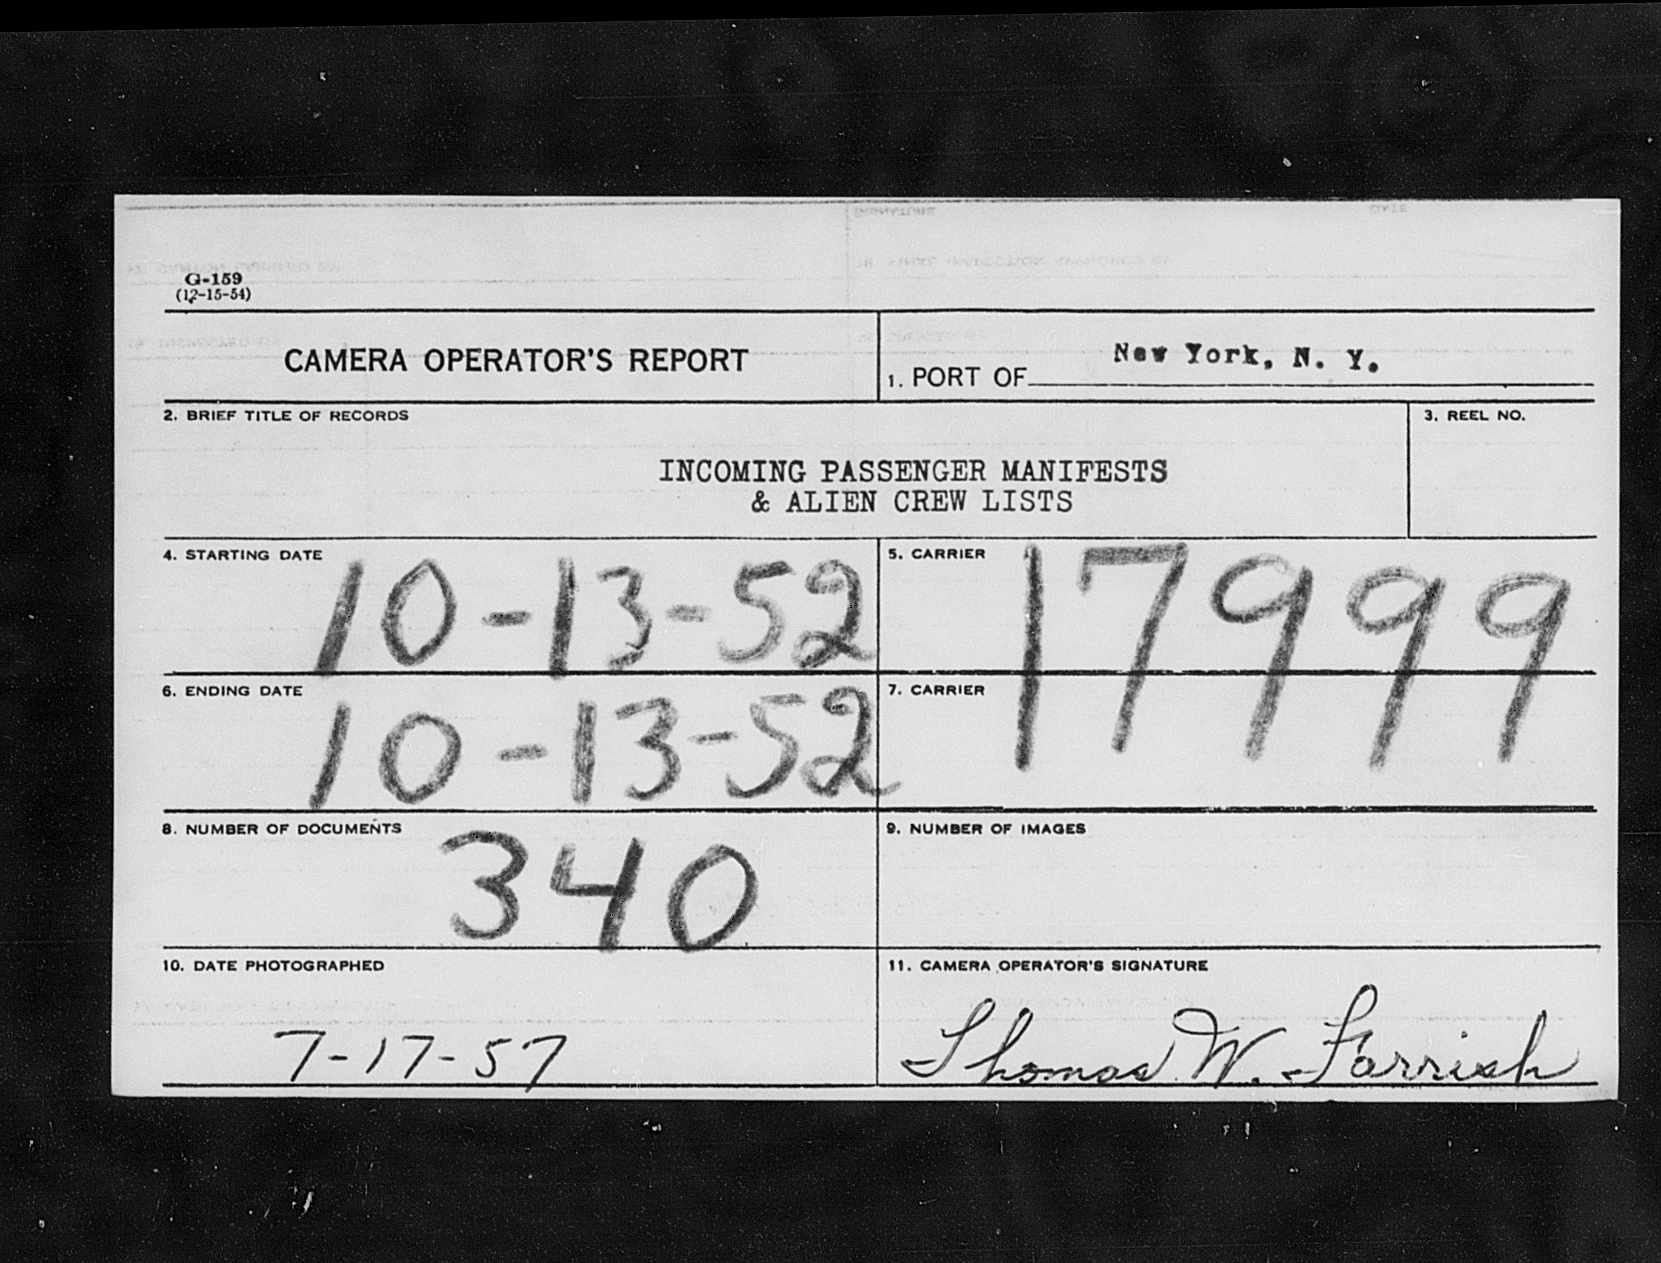 G-159
(12-15-54)
CAMERA OPERATOR'S REPORT
1. PORT OF New York, N. Y.
2. BRIEF TITLE OF RECORDS
3. REEL NO.
INCOMING PASSENGER MANIFESTS
& ALIEN CREW LISTS
4. STARTING DATE 10-13-52
5. CARRIER 17999
6. ENDING DATE 10-13-52
7. CARRIER
8. NUMBER OF DOCUMENTS 340
9. NUMBER OF IMAGES
10. DATE PHOTOGRAPHED
7-17-57
11. CAMERA OPERATOR'S SIGNATURE
Thomas W. Farrish